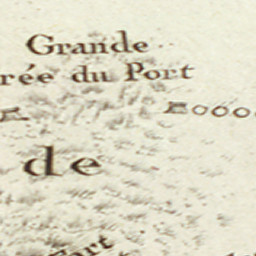 Grande
rée du Port
de